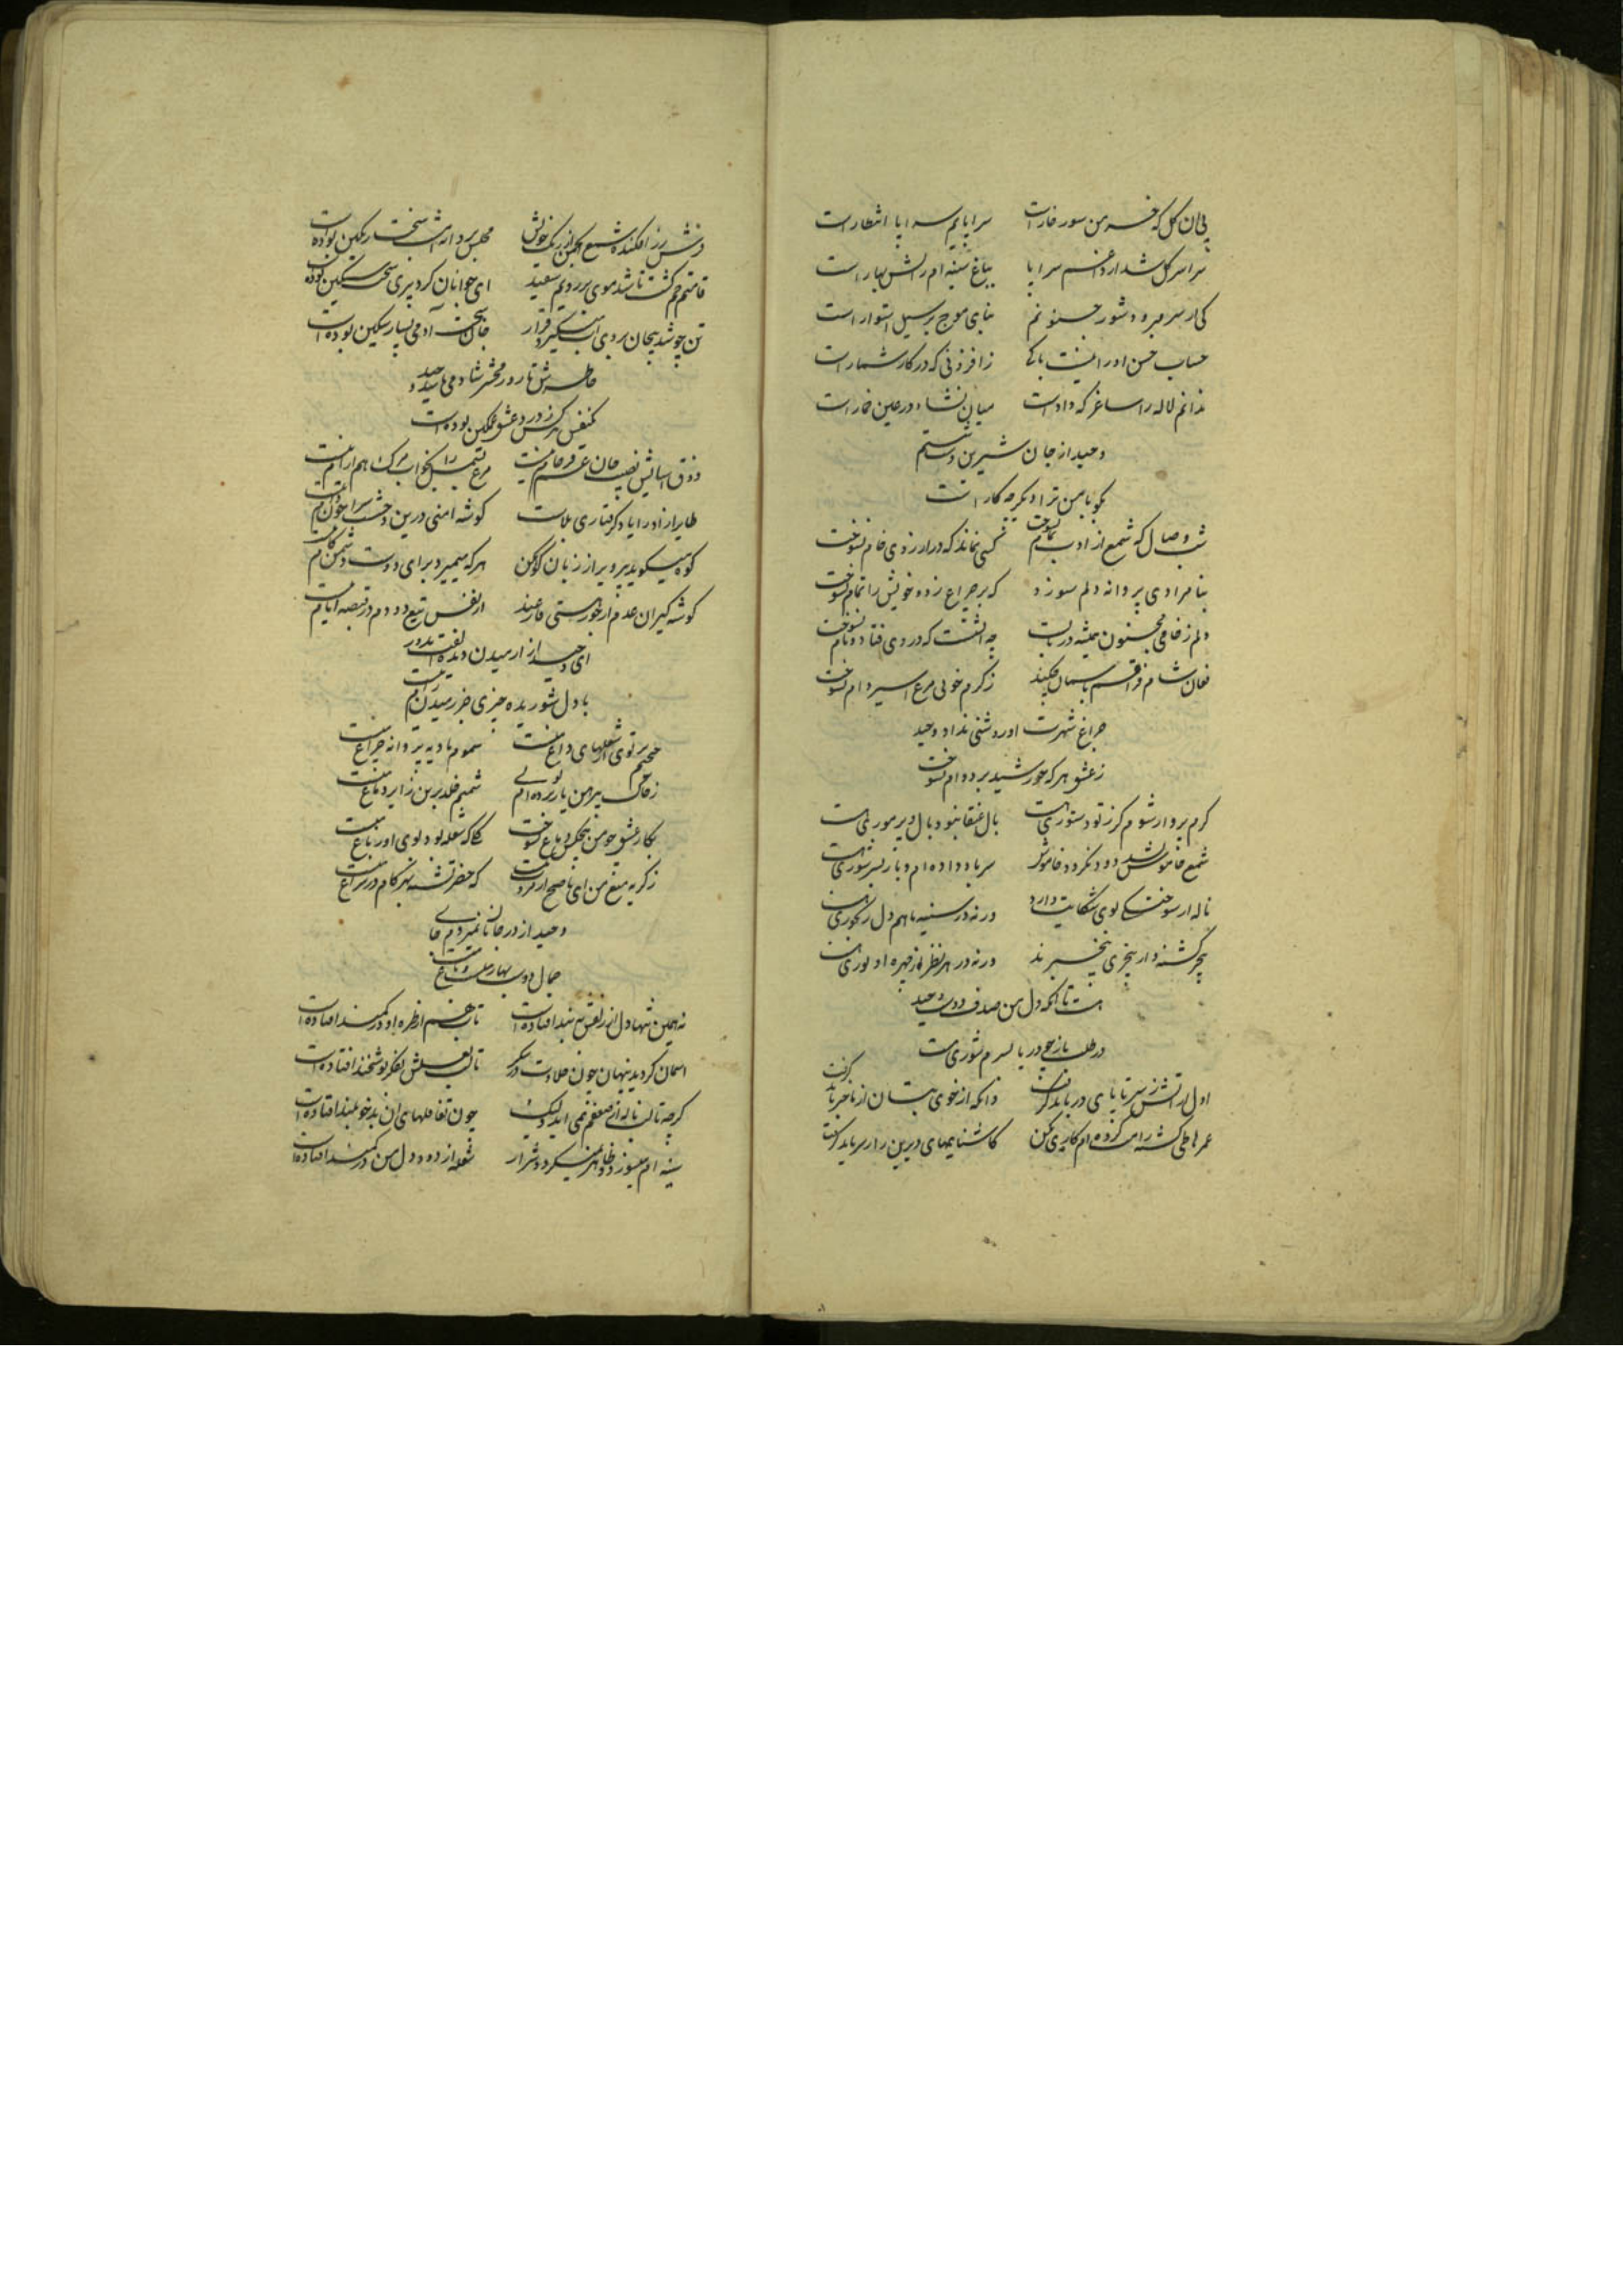 پی ان کل که خرمن سور خارات سراپایم سراپا انتظار است
سراسر کل شد از داغم سراپا بباغ سینه ام راتش بهار است
کی از سر میرود شور جنونم بنای موج بر سیل استوار است
حساب حسن او را نیست باکی ز افزونی که در کار شمار است
ندانم لاله را ساغر که دادست میان نشاء در عین خمار است
وحید از جان شیرین دست شستم
بکو با من ترا دیکر چه کار است
شب وصال که شمع از ادب تمام نسوخت کسی نماند که در ارزوی خام نسوخت
بنامرادی پروانه دلم سوزد که بر چراغ زد و خویش را تمام نسوخت
دلم ز خامی مجنون همیشه در تابست چه اتشست که در وی فتاد و نام نسوخت
فغان شام فراقم باسمان چکند ز کرم خویی مرغ اسیر دام نسوخت
چراغ شهرت او روشنی نداد وحید
ز عشق هر که چو خورشید بر دوام نسوخت
کرم پرواز شوم کر ز تو دستوری هست بال عنقا نبود بال و پر موری هست
شمع خاموش شد دود نکردد خاموش سر بباد داده ام و باز بسر شوری هست
ناله از سوختکی بوی شکایت دارد ور نه در سینه ما هم دل رنجوری هست
بیخبر کشته و از بیخبری بیخبرند ور نه در هر نظر از چهره او نوری هست
هست تا انکه دل من صدف دوست وحید
در طلب باز چو دریا بسرم شوری هست
اول از اتش ز سر تا پای در باید کرفت وانکه از خوی بتان از ما خبر باید کرفت
عمرها طی کشت رامت کرده ام کاری مکن کاشناییهای دیرین را ز سر باید کرفت
شمع انجمن از رنک خویش مجلس پرداز شب سخت رنکین بوده است
قامتم خم کشت تا شد موی بر رویم سفید ای جوانان کرد پیری سخت سنکین بوده است
تن چو شد بیجان بروی اب میکیرد قرار جان سخت آدمی بسیار سنکین بوده است
خاطرش تا روز محشر شادمی باشد وحید
یکنفس هر کس ز درد عشق غمکین بوده است
ذوق اسایش نصیب جان غم فرجام نیست مرغ بسمل را بخواب مرک هم ارام نیست
طایر ازاد را یاد کرفتاری بلاست کوشه امنی درین وحشت سرا چون دام نیست
کوه میکوید بپرویز از زبان کوهکن هر که میمیرد برای دوست دشمن کام نیست
کوشه کیران عدم از خود رستی فارغند از نفس تیغ دو دم در قبضه ایام نیست
ای وحید از ارمیدن دیده ات
با دل شوریده چیزی جز رمیدن رام نیست
جحیم پرتوی از شعلهای داغ منست سموم بادیه پروانه چراغ منست
ز خاک پیرهن یار برده ام بوی شمیم خلد برین زاید دماغ منست
بکار عشق چو من هیچکس دماغ نسوخت کلی که شعله بود بوی او ز باغ منست
ز کریه منع من ای ناصح از مروت نیست که خضر تشنه بهر کام در سراغ منست
وحید از در جانان نمیروم جایی
جمال دوست بهار منست و باغ منست
نه همین تنها دل از زلفش به بند افتاده است تاب هم از طره او در کمند افتاده است
اسمان کردید پنهان چون حلاوت در شکر تا لب لعلش بفکر نوشخند افتاده است
کرچه تا لب ناله از ضعفم نمی اید ولیک چون تغافلهای ان بدخو بلند افتاده است
سینه ام میسوزد و ظاهر نمیکردد شرار شعله از دود دل من در کمند افتاده است